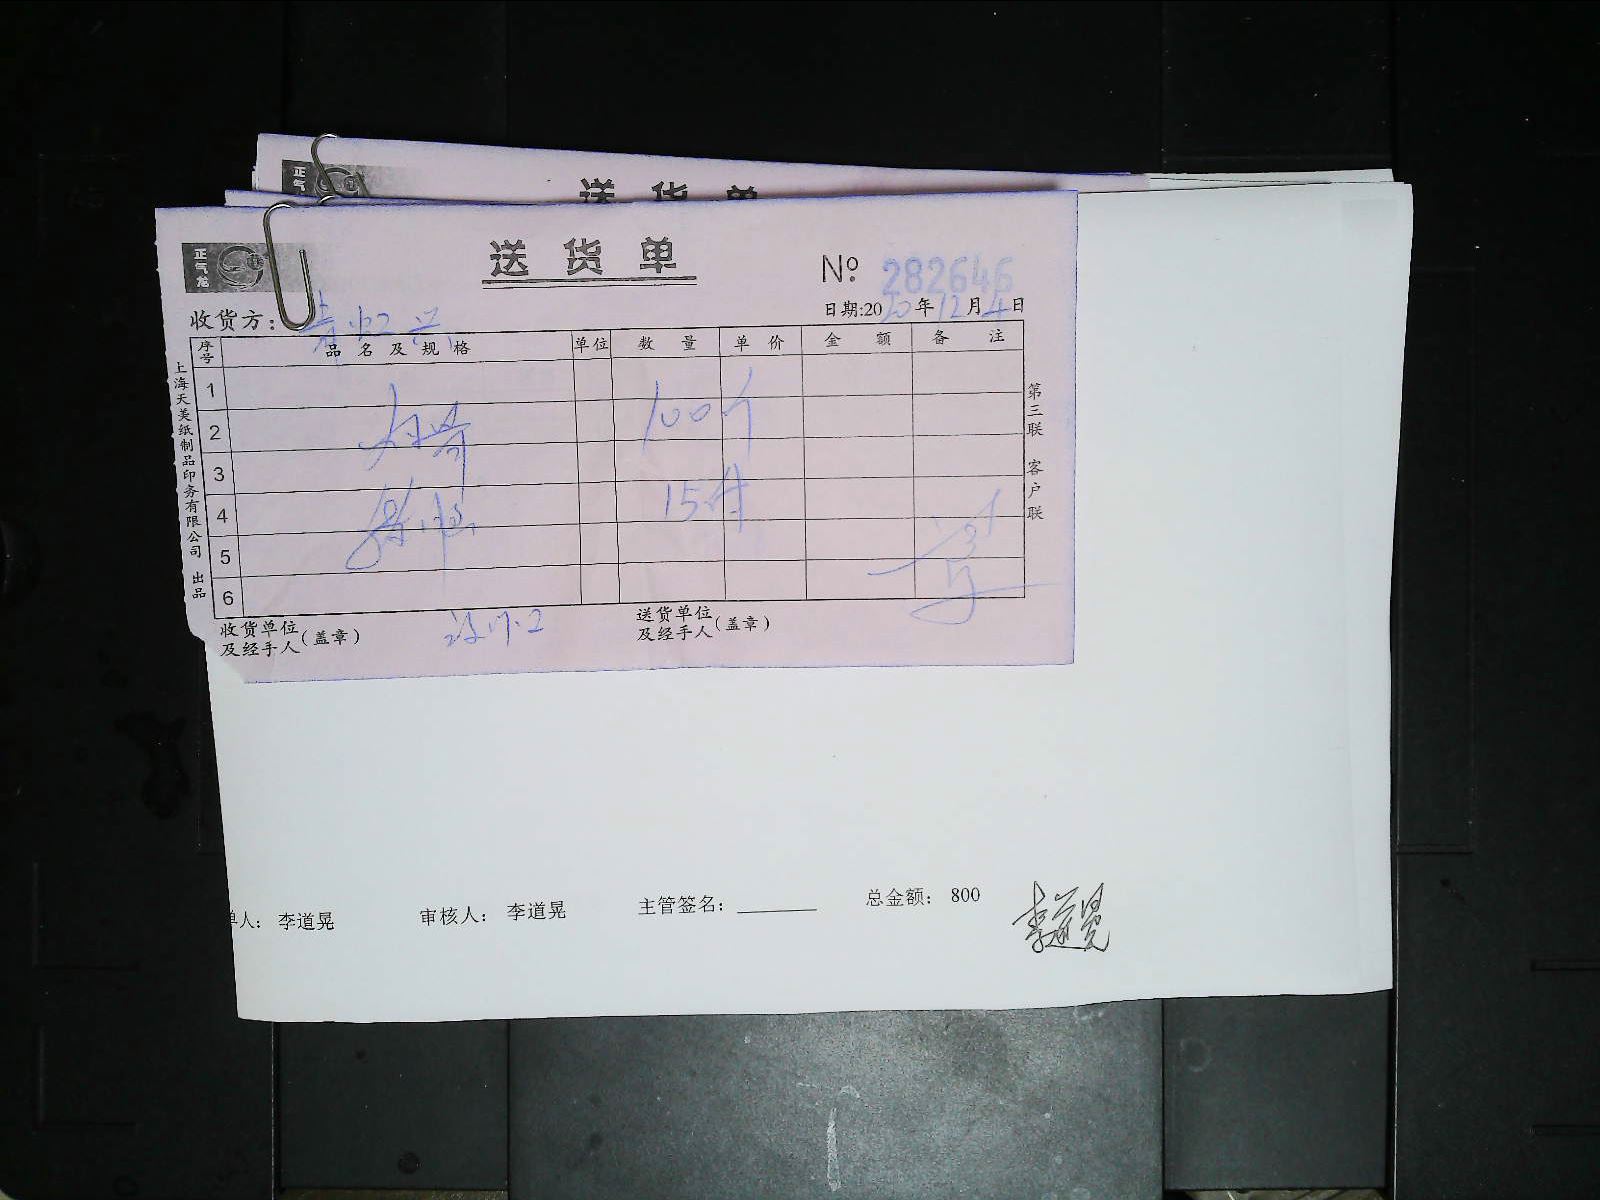 正气
送货单
正气龙
送货单
№ 282646
收货方：
日期:2020年12月4日
序号 品名及规格 单位 数量 单价 金额 备注
1
2 100个
3
4 15件
5
6
上海天美纸制品印务有限公司 出品
第三联 客户联
收货单位及经手人(盖章)
送货单位及经手人(盖章)
单人： 李道晃 审核人： 李道晃 主管签名： 总金额： 800
李道晃